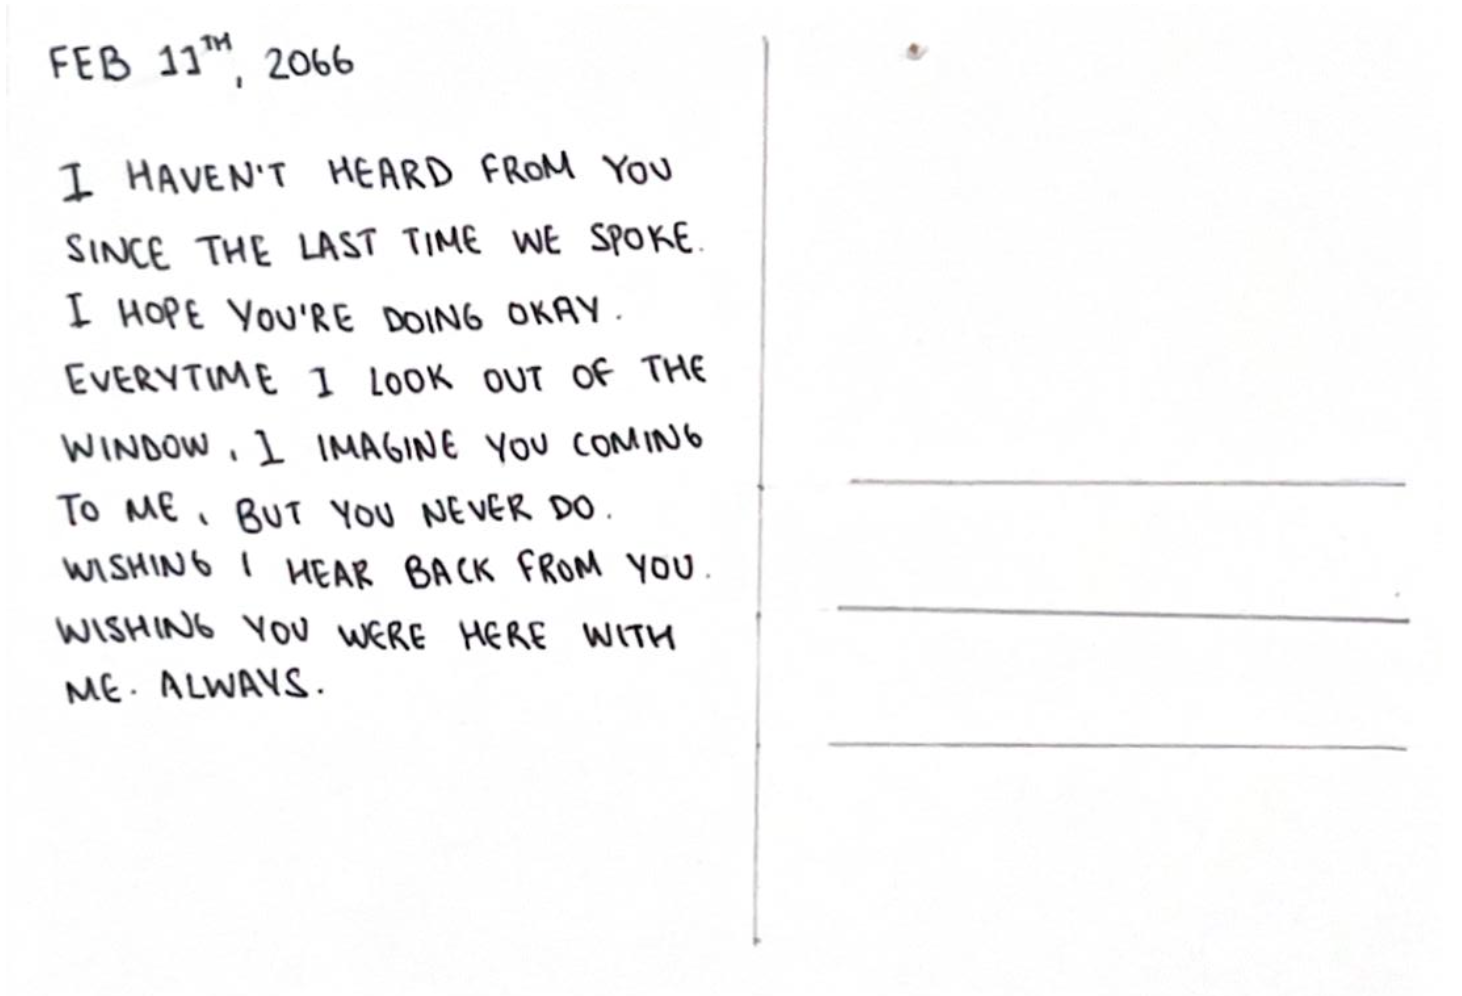 FEB 11TH, 2066
I HAVEN'T HEARD FROM YOU
SINCE THE LAST TIME WE SPOKE.
I HOPE YOU'RE DOING OKAY.
EVERYTIME I LOOK OUT OF THE
WINDOW, I IMAGINE YOU COMING
TO ME, BUT YOU NEVER DO.
WISHING I HEAR BACK FROM YOU.
WISHING YOU WERE HERE WITH
ME. ALWAYS.